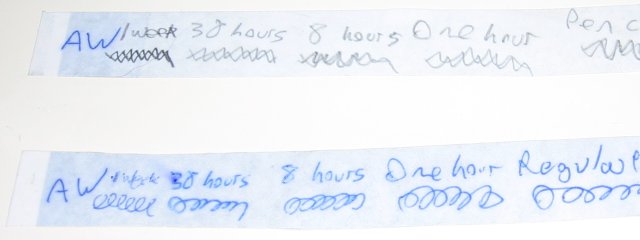 AW 1 week 38 hours 8 hours One hour Penc
AW 1 week 38 hours 8 hours One hour Regular P